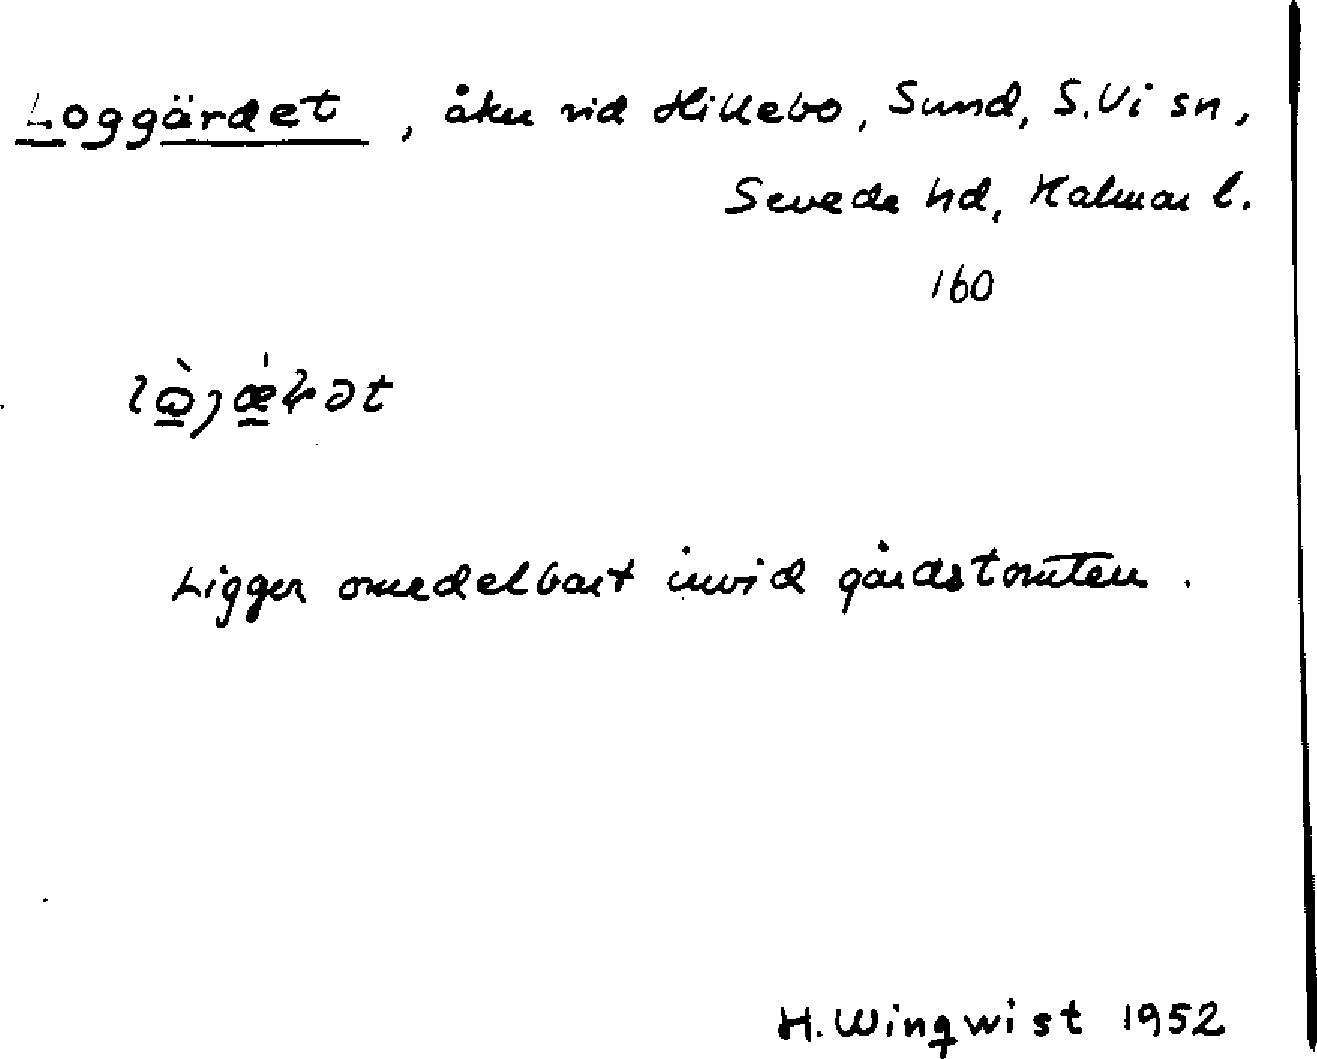 Loggärdet, åker vid Hillebo, Sund, S.Vi sn,
Sevede hd, Kalmar l.
160
Ligger omedelbart invid gårdstomten.
H. Wingwist 1952